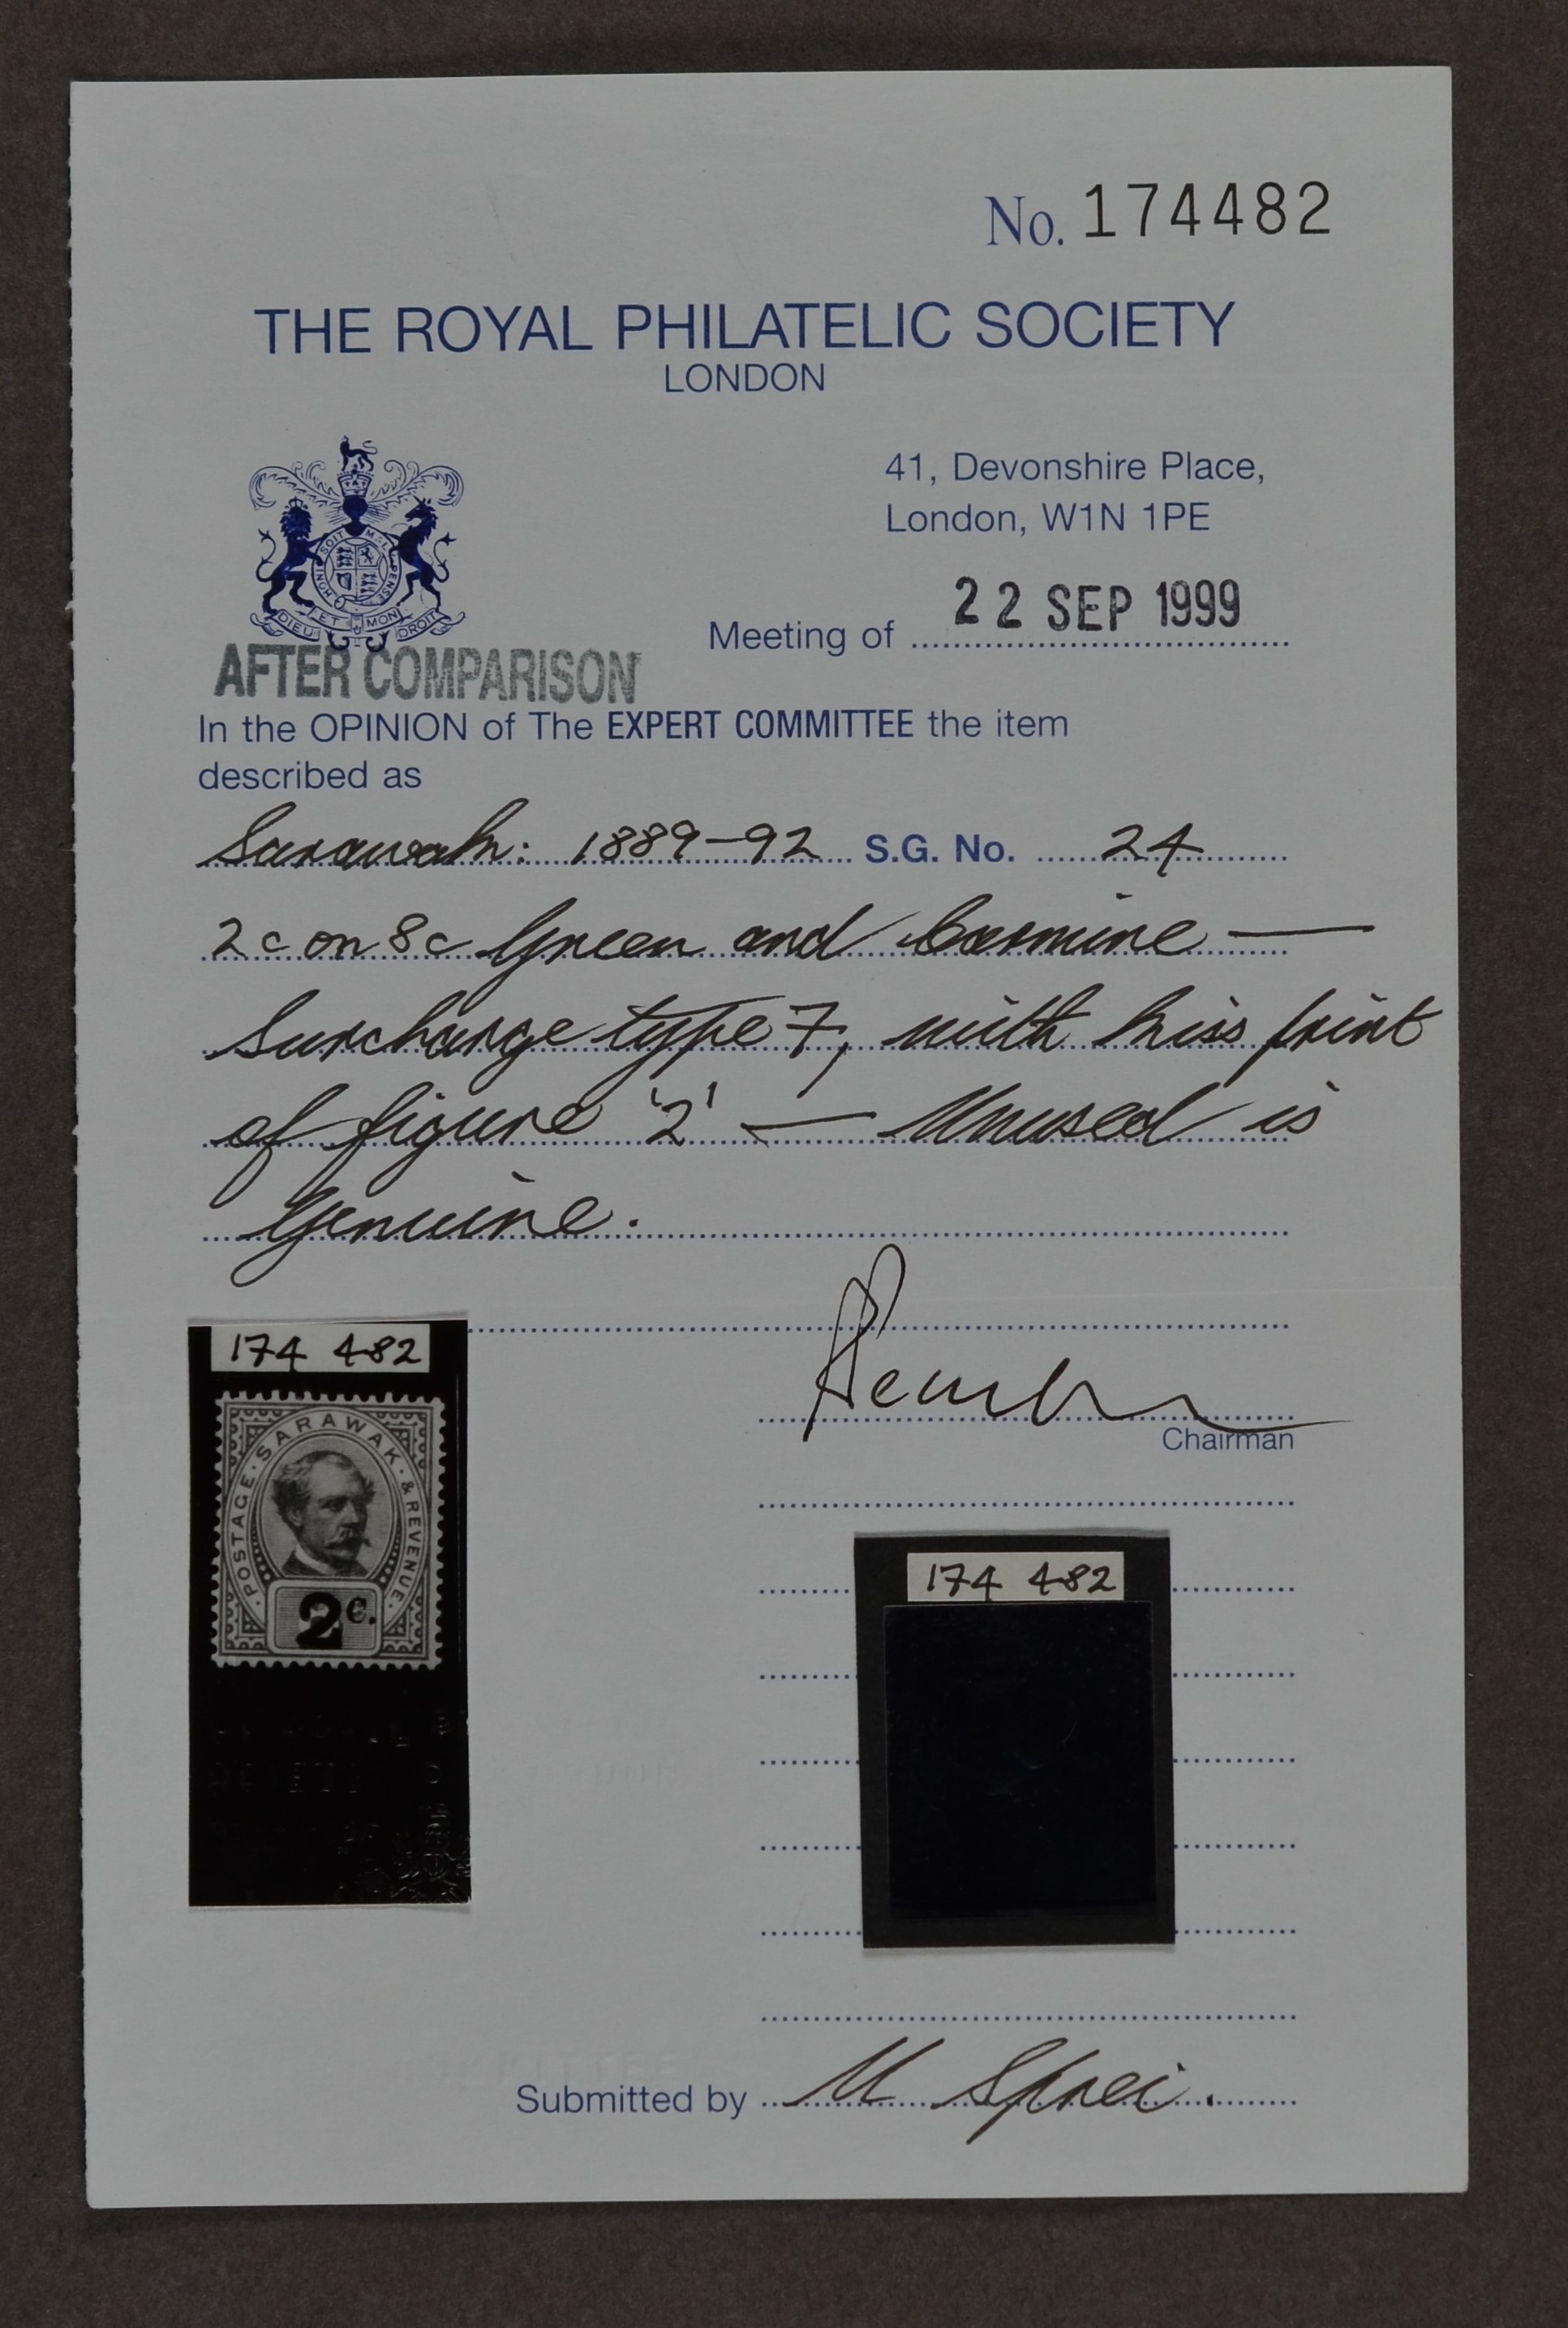 No. 174482
THE ROYAL PHILATELIC SOCIETY
LONDON
41, Devonshire Place,
London, W1N 1PE
HONI SOIT MAL PENSE
DIEU ET MON DROIT
Meeting of 22 SEP 1999
AFTER COMPARISON
In the OPINION of The EXPERT COMMITTEE the item
described as
Sarawak: 1889-92 S.G. No. 24
2c on 8c Green and Carmine —
Surcharge type 7, with Miss print
of figure '2' — Unused is
Genuine.
174 482
POSTAGE · SARAWAK · & REVENUE ·
2c.
Chairman
174 482
Submitted by M Sprei.